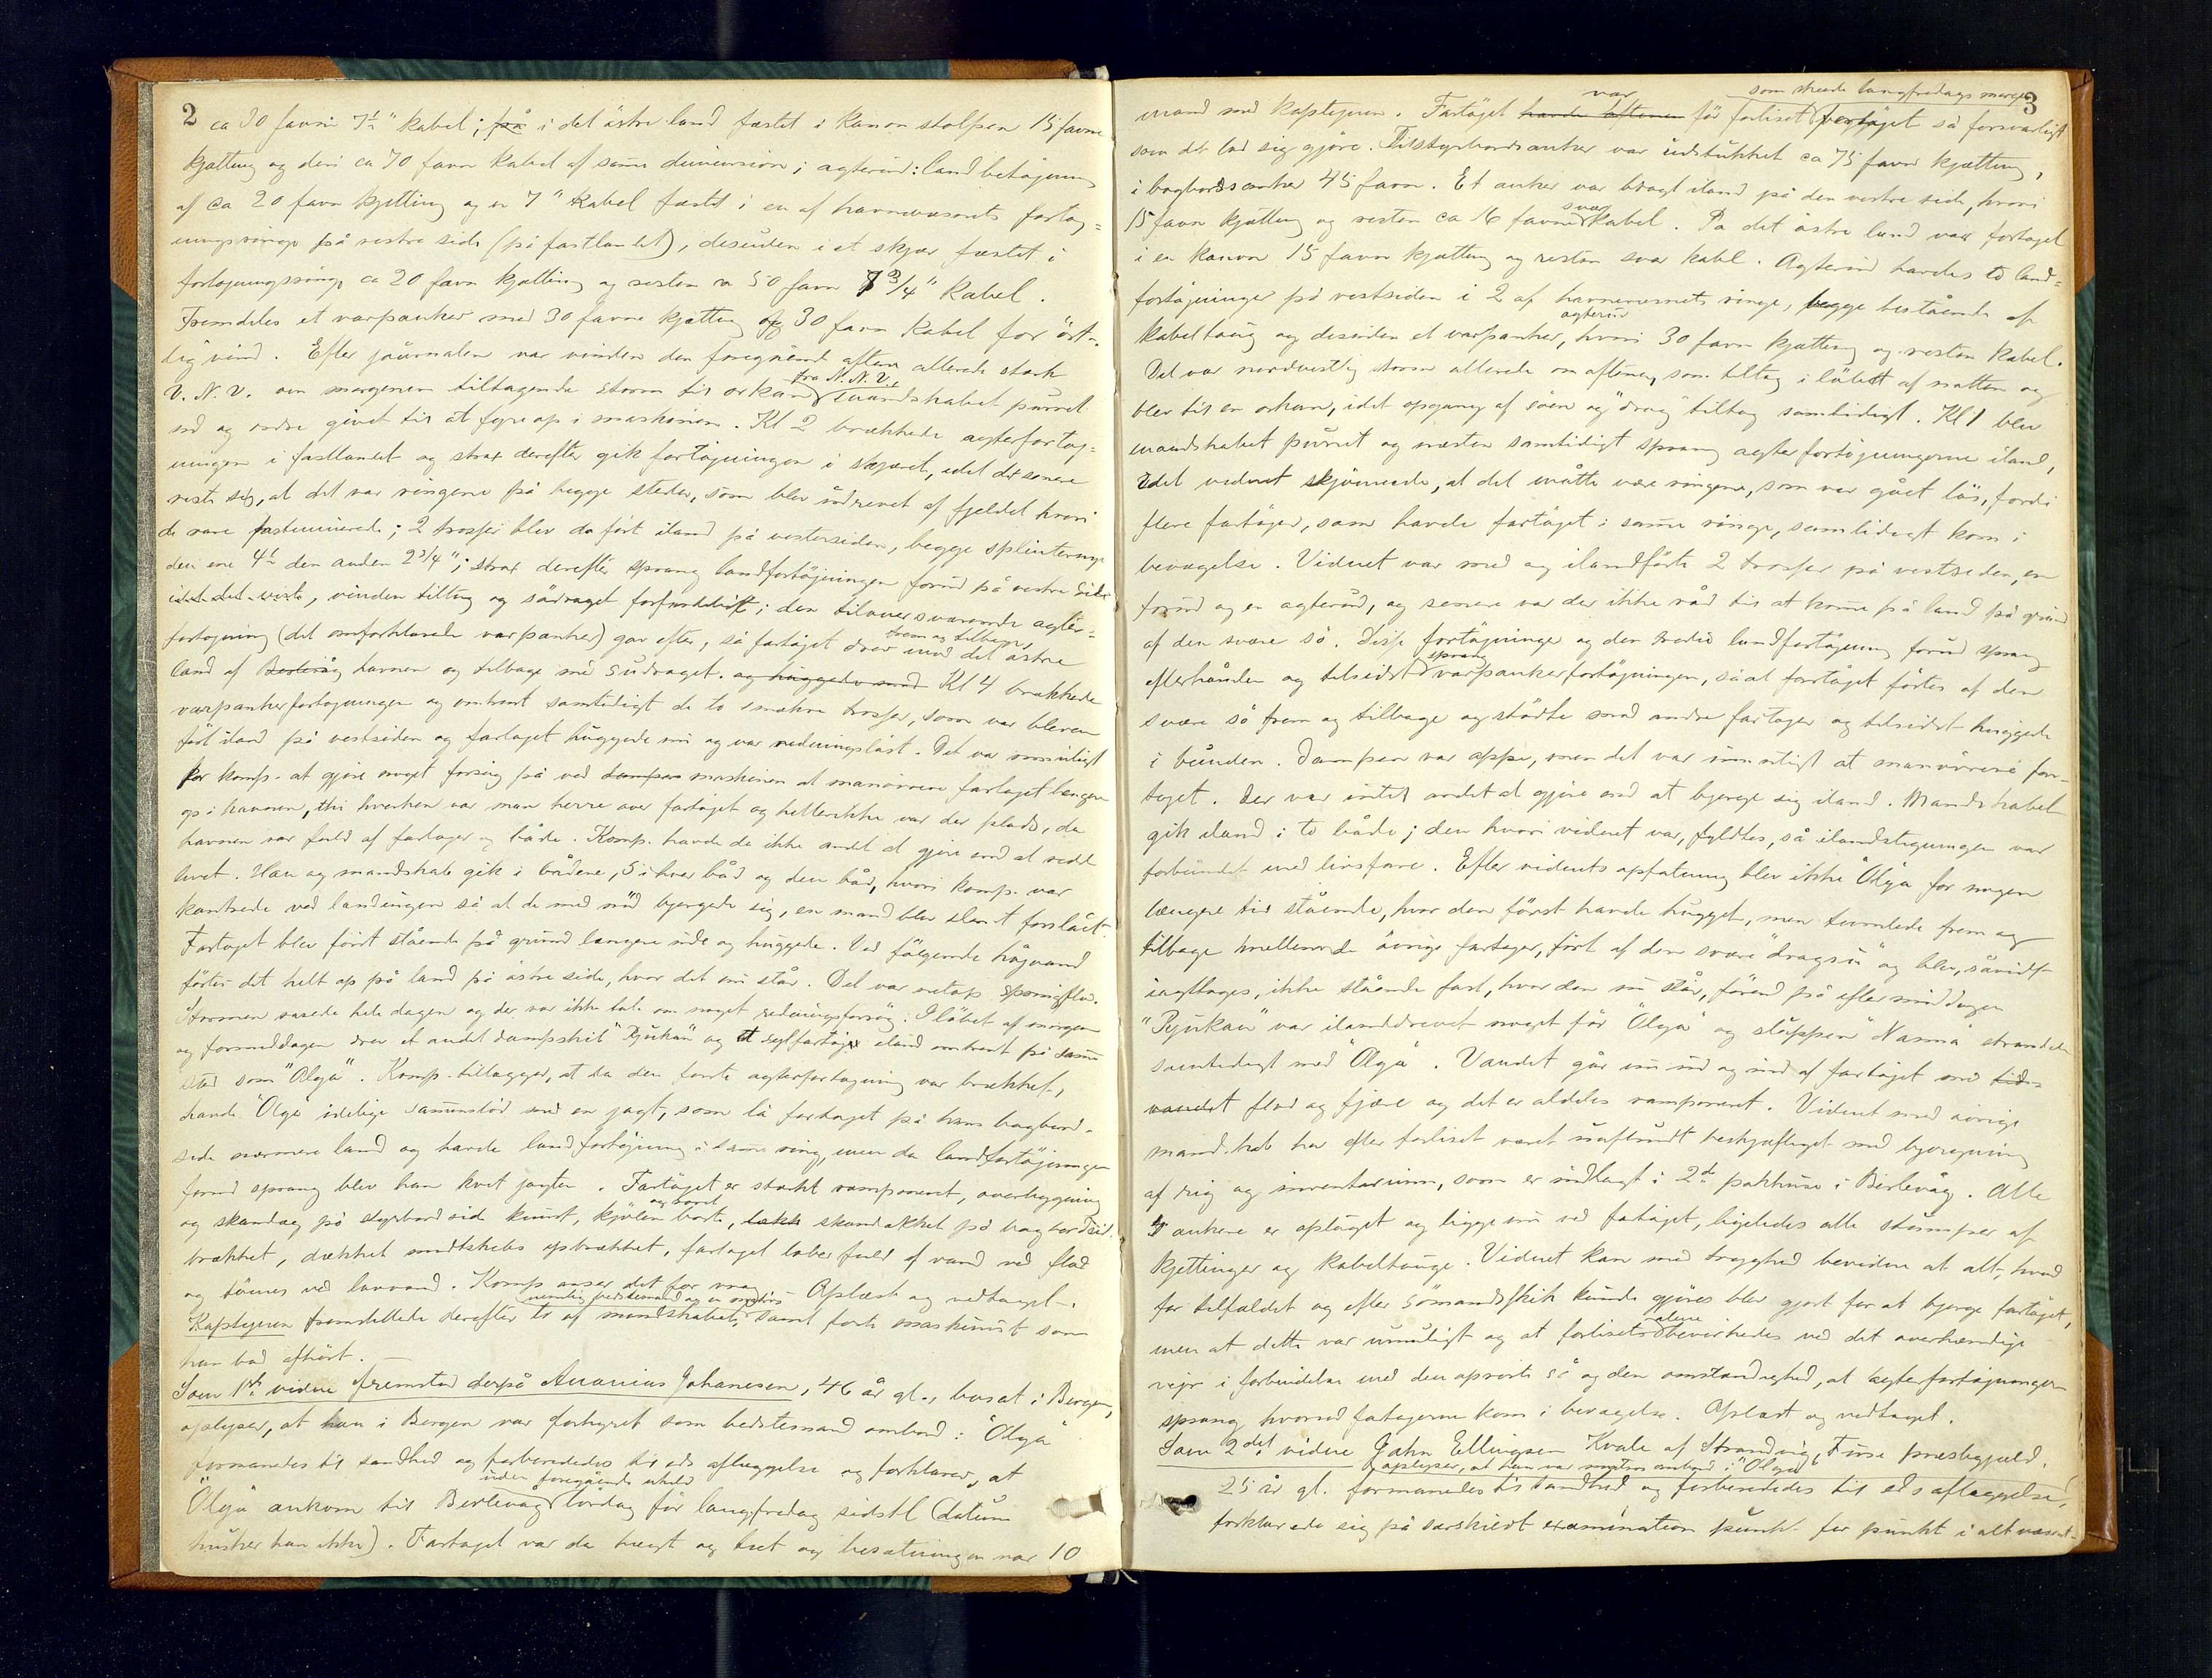 2
ca 30 favn 7½" kabel; på i det östre land fæstet i kanon stolpen 15 favne
kjætting og deri ca 70 favn kabel af samme dimension; agterud: landbetöjning
af ca 20 favn kjetting og en 7" kabel fæstet i en af havnevæsenets fortøj=
ningsringe på vestre side (på fastlandet), desuden i et skjær fæstet i
fortøjningsring ca 20 favn kjætting og resten ca 50 favn 7 3/4" kabel.
Fremdeles et varpanker med 30 favne kjætting og 30 favn kabel for öst-
lig vind. Efter journalen var vinden den foregående aften allerede stærk
V.N.V. om morgenen tiltagende storm til orkan fra N.N.V., mandskabet purret
ud og ordre givet til at fyre op i maskinen. Kl 2 brækkede agterfortøj=
ningen i fastlandet og strax derefter gik fortøjningen i skjæret, idet det senere
viste sig, at det var ringene på begge steder, som blev udrevet af fjeldet hvori
de vare fastminerede; 2 trosser blev da ført iland på vestersiden, begge splinternye
den ene 4½ den anden 2 3/4"; strax derefter sprang landfortöjningen forud på vestre side
idet det viste, vinden tiltog og södraget forfærdeligt; den tiloversværende agter=
fortøjning (det omforklarede varpanker) gav efter, så fartöjet drev frem og tilbage, mod det östre
land af Berlevåg havnen og tilbage med sudraget. og huggede mod Kl 4 brækkede
varpankerfortøjningen og omtrent samtidigt de to smækre trosser, som var bleven
fört iland på vestsiden og fartøjet huggede nu og var redningslöst. Det var umuligt
for komp. at gjöre noget forsög på ved dampen maskinen at manövrere fartöjet længere
op i havnen, thi hverken var man herre over fartöjet og heller ikke var der plads, da
havnen var fuld af fartöjer og både. Komp. havde da ikke andet at gjöre end at redde
livet. Han og mandskab gik i bådene, 5 i hver båd og den båd, hvori komp. var
kantrede ved landingen så at de med nöd bjergede sig, en mand blev slemt forslået.
Fartøjet blev först stående på grund længere ude og huggede. Ved fölgende höjvand
förtes det helt op på land på östre side, hvor det nu står. Det var netop springflod.
Stormen rasede hele dagen og der var ikke tale om noget redningsforsög. I löbet af morgen
og formiddagen drev et andet dampskib "Rjukan" og et sejlfartöj iland omtrent på samme
sted som "Olga". Komp. tillægger, at da den første agterfortøjning var brækket,
havde "Olga" idelige sammenstöd med en jagt, som lå fortøjet på hans bagbord=
side nærmere land og havde landfortöjning i samme ring, men da landfortöjningen
forud sprang blev han kvit jagten. Fartöjet er stærkt ramponeret, overbygning
og skandæg på styrbord side knust, kjölen og roret borte, lækk skandækket på bagbord side
brækket, dækket midtskibs opbrækket, fartøjet løber fuld af vand ved flod
og tömes ved lavvand. Komp anser det for vrag. Oplæst og vedtaget.
Kaptejnen fremstillede derefter to af mandskabet, nemlig bedstemand og en matros samt förste maskinist som
han bad afhört.
Som 1ste vidne fremstod derpå Ananias Johanesen, 46 år gl., bosat i Bergen,
oplyser, at han i Bergen var forhyret som bedstemand ombord i "Olga"
formanedes til sandhed og forberededes til eds aflæggelse og forklarer, at
"Olga" ankom til Berlevåg uden foregående uheld lørdag för langfredag sidstl (datum
husker han ikke). Fartøjet var da tungt og tæt og besætningen var 10
3
mand med kaptejnen. Fartöjet havde aftenen var för forliset som skede langfredags morgen fortöjet så forsvarligt
som det lod sig gjöre. Til styrbordsanker var udstukket ca 75 favne kjætting,
i bagbordsanker 45 favn. Et anker var bragt iland på den vestre side, hvori
15 favn kjætting og resten ca 16 favne svær kabel. På det östre land var fortøjet
i en kanon 15 favn kjætting og resten svær kabel. Agterud havdes to land=
fortöjninger på vestsiden i 2 af havnevesnets ringe, begge bestående af
kabeltoug og desuden et varpanker agterud, hvori 30 favn kjætting og resten kabel.
Det var nordvestlig storm allerede om aftenen, som tiltog i löbet af natten og
blev til en orkan, idet opgang af søen og "drag" tiltog samtidigt. Kl 1 blev
mandskabet purret og næsten samtidigt sprang agterfortöjningerne iland,
idet vidnet skjönnede, at det måtte være ringene, som var gået lös, fordi
flere fartöjer, som havde fartöjet i samme ringe, samtidigt kom i
bevægelse. Vidnet var med og ilandförte 2 trosser på vestsiden, en
forud og en agterud, og senere var der ikke råd til at komme på land på grund
af den svære sö. Disse fortöjninge og den tredie landfortöjning forud sprang
efterhånden og tilsidst sprang varpankerfortöjningen, så at fartöjet førtes af den
svære sö frem og tilbage og stödte mod andre fartøjer og tilsidst huggede
i bunden. Dampen var oppe, men det var umuligt at manövrere far-
töjet. Der var intet andet at gjöre end at bjerge sig iland. Mandskabet
gik iland i to både; den hvori vidnet var, fyldtes, så ilandstigningen var
forbundet med livsfare. Efter vidnets opfatning blev ikke "Olga" for nogen
længere tid stående, hvor den först havde hugget, men tumlede frem og
tilbage mellem de övrige fartøjer, fört af den svære "dragsu" og blev, såvidt
iagttoges, ikke stående fast, hvor den nu står, förend på eftermiddagen
"Rjukan" var ilanddrevet noget før "Olga" og sluppen "Nanna" strandede
samtidigt med "Olga". Vandet går nu ud og ind af fartöjet med tid=
vandet flod og fjære og det er aldeles ramponeret. Vidnet med övrige
mandskab har efter forliset været uafbrudt beskjæftiget med bjergning
af rig og inventarium, som er indlagt i 2de pakhuse i Berlevåg. Alle
3 ankrene er optaget og ligge nu ved fatøjet, ligeledes alle stumper af
kjettinger og kabeltouge. Vidnet kan med tryghed bevidne at alt, hvad
for tilfældet og efter sömandsskik kunde gjöres blev gjort for at bjerge fartöjet,
men at dette var umuligt og at forliset alene bevirkedes ved det overhændige
vejr i forbindelse med den oprørte sö og den omstændighed, at agterfortøjningen
sprang hvorved fatøjerne kom i bevægelse. Oplæst og vedtaget.
Som 2det vidne John Ellingsen Kvale af Strandvig, Fuse præstegjæld,
25 år gl. oplyser, at han var matros ombord i "Olga" formanedes til sandhed og forberededes til eds aflæggelse,
forklarede sig på særskildt examination punkt for punkt i alt væsent-